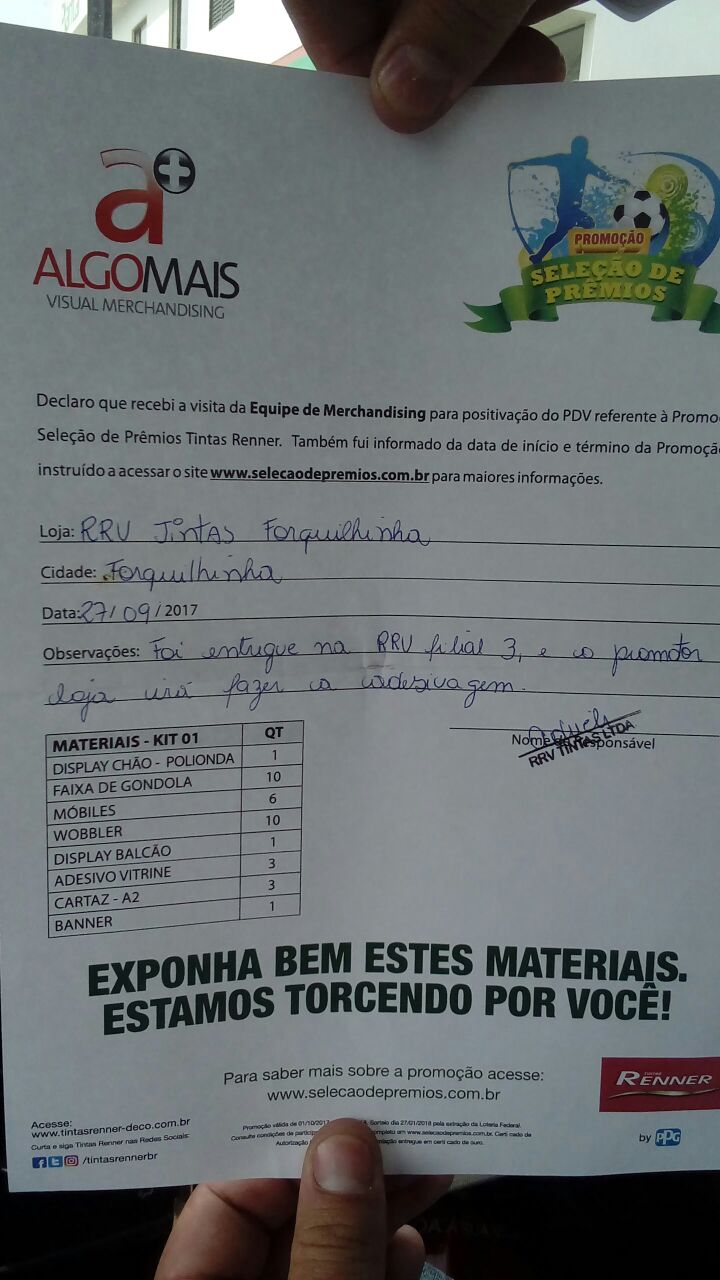 a+
ALGOMAIS
VISUAL MERCHANDISING
PROMOÇÃO
SELEÇÃO DE
PRÊMIOS
Declaro que recebi a visita da Equipe de Merchandising para positivação do PDV referente à Promo
Seleção de Prêmios Tintas Renner. Também fui informado da data de início e término da Promoçã
instruído a acessar o site www.selecaodepremios.com.br para maiores informações.
Loja: RRV Tintas Forquilhinha
Cidade: Forquilhinha
Data: 27/09/2017
Observações: Foi entregue na RRV filial 3, e o promotor
loja irá fazer a adesivagem.
Nome do Responsável
RRV TINTAS LTDA
MATERIAIS - KIT 01 QT
DISPLAY CHÃO - POLIONDA 1
FAIXA DE GONDOLA 10
MÓBILES 6
WOBBLER 10
DISPLAY BALCÃO 1
ADESIVO VITRINE 3
CARTAZ - A2 3
BANNER 1
EXPONHA BEM ESTES MATERIAIS.
ESTAMOS TORCENDO POR VOCÊ!
Para saber mais sobre a promoção acesse:
www.selecaodepremios.com.br
TINTAS
RENNER
by PPG
Acesse:
www.tintasrenner-deco.com.br
Curta e siga Tintas Renner nas Redes Sociais:
/tintasrennerbr
Promoção válida de 01/10/2017 Sorteio dia 27/01/2018 pela extração da Loteria Federal.
Consulte condições de particip completo em www.selecaodepremios.com.br. Certi cado de
Autorização entregue em certi cado de ouro.